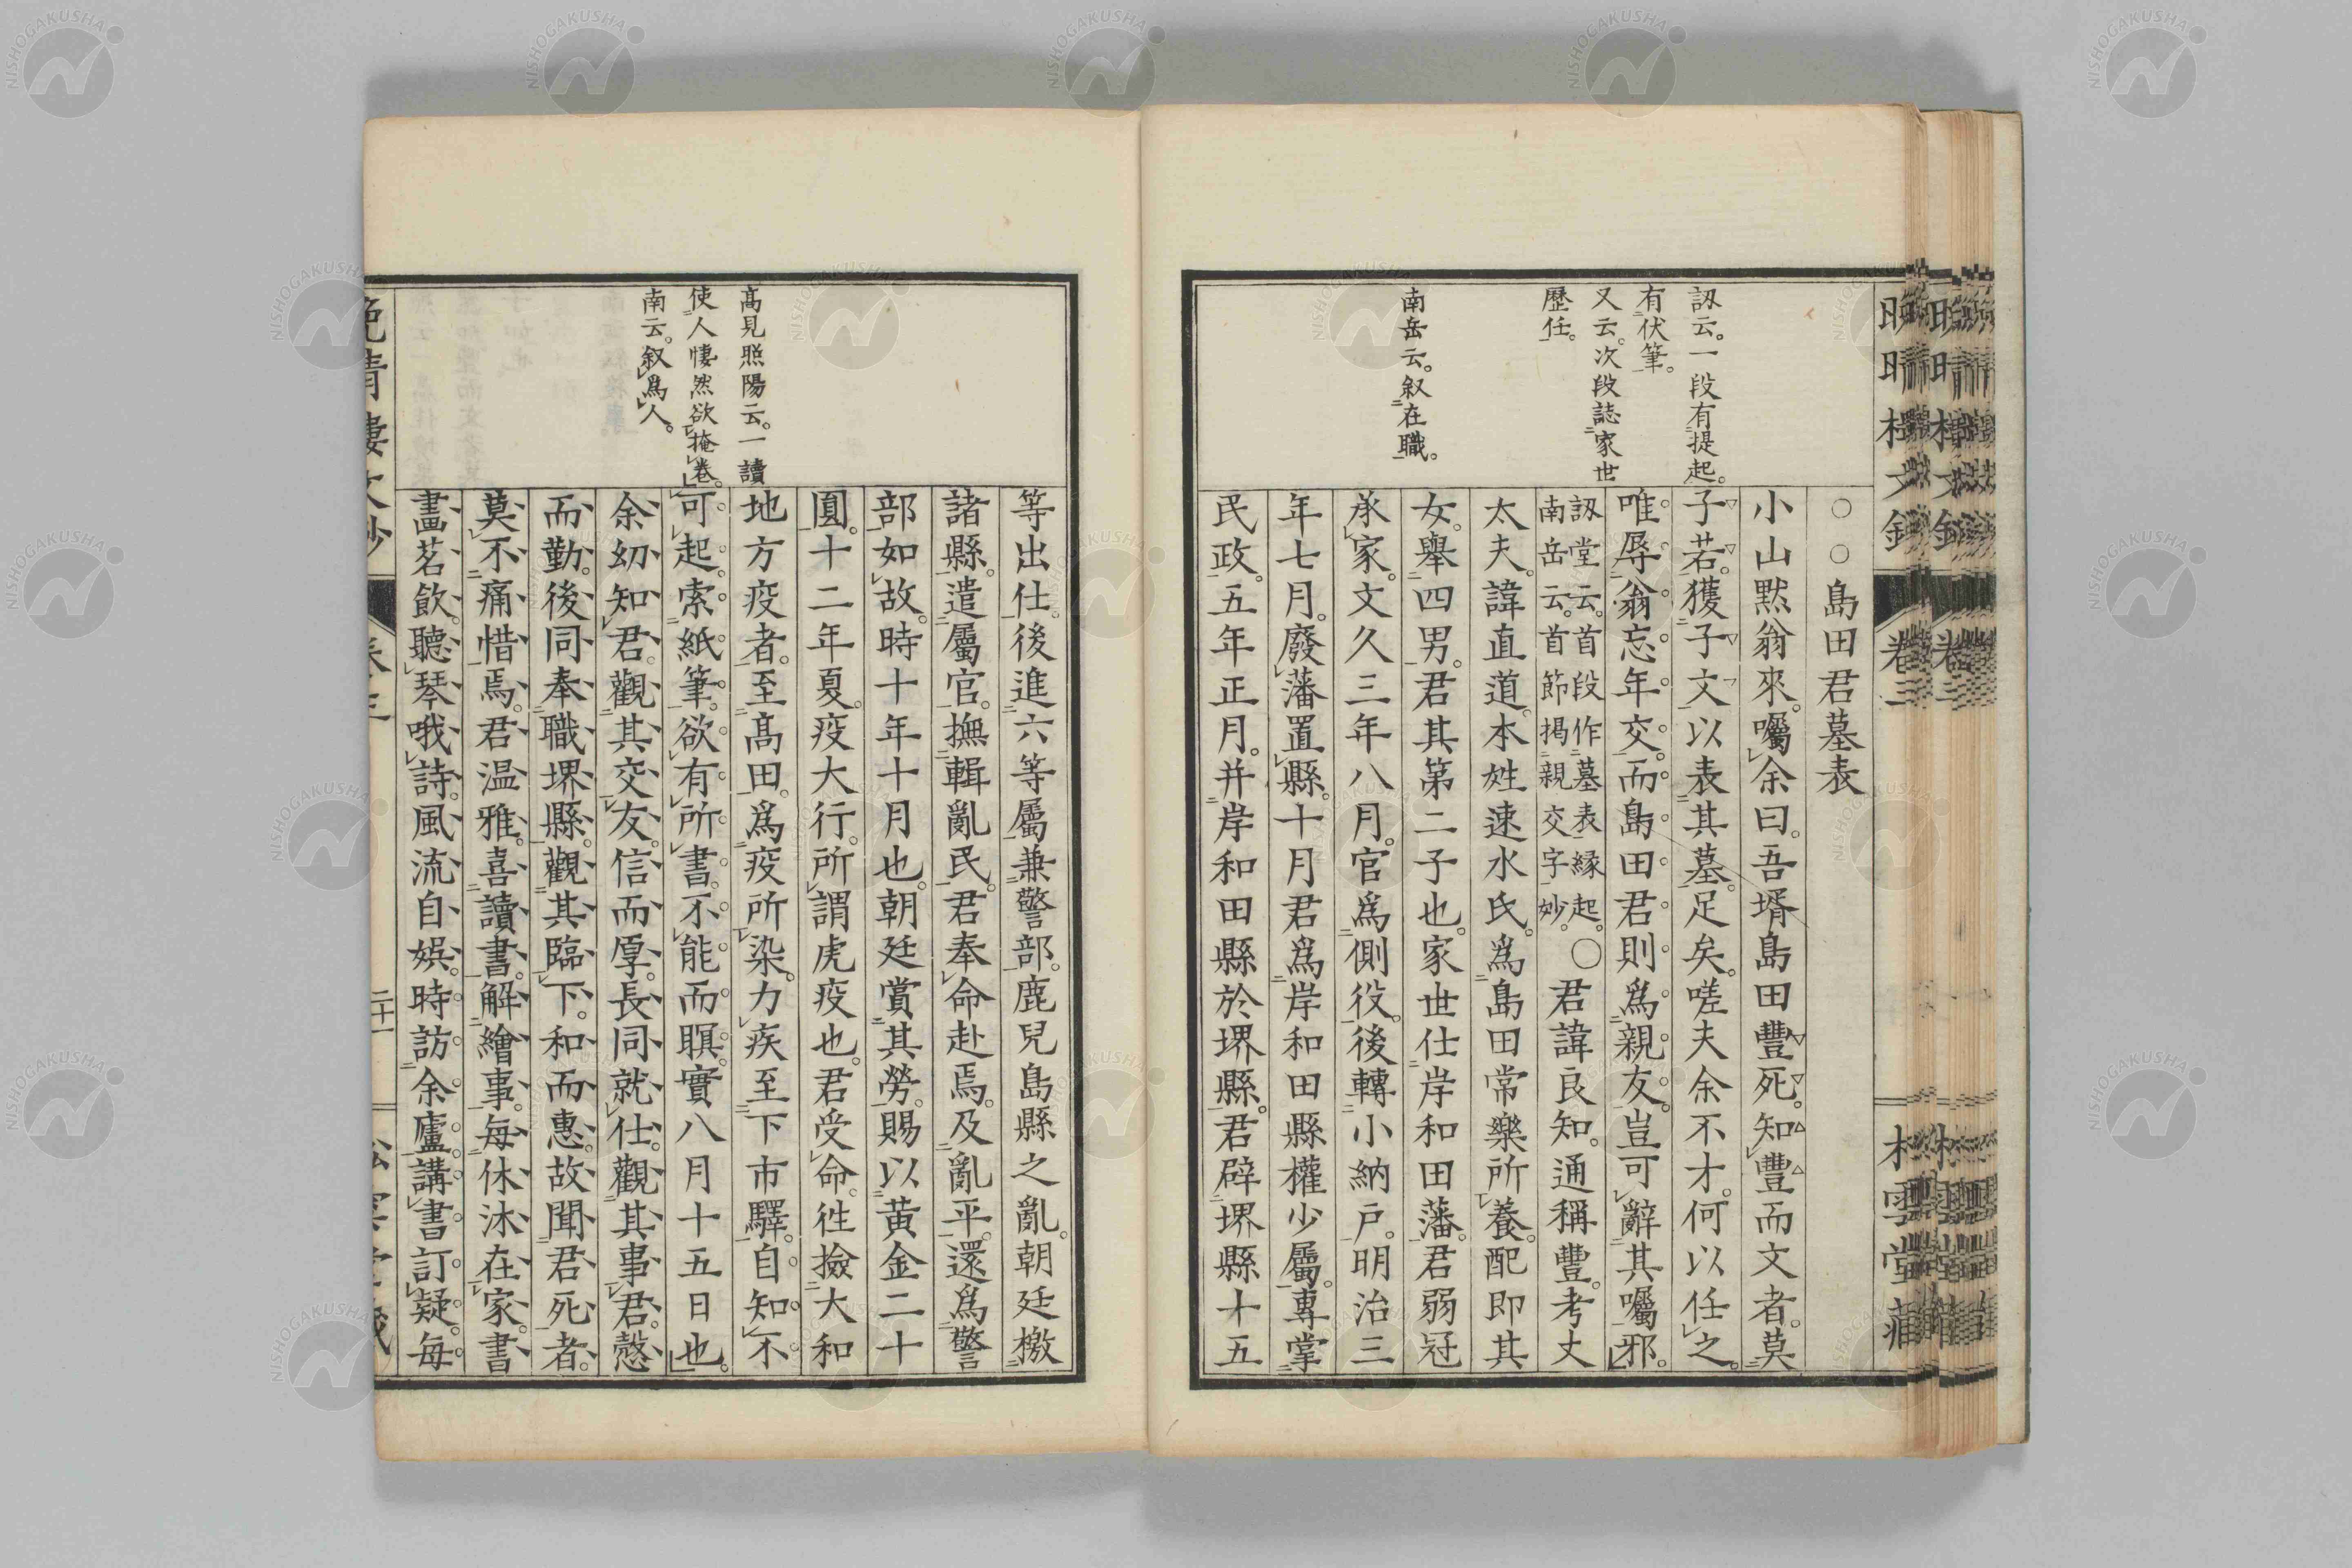 ○○島田君墓表
小山黙翁來。囑余曰。吾壻島田豐死。知豐而文者。莫
子若。獲子文以表其墓。足矣。嗟夫余不才。何以任之。
唯辱翁忘年交。而島田君則爲親友。豈可辭其囑邪。
訒堂云。首段作墓表縁起。
南岳云。首節掲親交字妙。
○君諱良知。通稱豐。考丈
太夫。諱直道。本姓速水氏。爲島田常樂所養。配即其
女。舉四男。君其第二子也。家世仕岸和田藩。君弱冠
承家。文久三年八月。官爲側役。後轉小納戸。明治三
年七月。廢藩置縣。十月君爲岸和田縣權少屬。專掌
民政。五年正月。并岸和田縣於堺縣。君辟堺縣十五
訒云。一段有提起。
有伏筆。
又云。次段誌家世
歷任。
南岳云。叙在職。
等出仕。後進六等屬兼警部。鹿兒島縣之亂。朝廷檄
諸縣。遣屬官。撫輯亂民。君奉命赴焉。及亂平。還爲警
部如故。時十年十月也。朝廷賞其勞。賜以黄金二十
圓。十二年夏。疫大行。所謂虎疫也。君受命。徃撿大和
地方疫者。至高田。爲疫所染。力疾至下市驛。自知不
可起。索紙筆。欲有所書。不能而瞑。實八月十五日也。
余幼知君。觀其交友。信而厚。長同就仕。觀其事君。慤
而勤。後同奉職堺縣。觀其臨下。和而惠。故聞君死者。
莫不痛惜焉。君温雅。喜讀書。解繪事。每休沐在家。書
畫茗飮。聽琴哦詩。風流自娯。時訪余廬。講書訂疑。每
高見照陽云。一讀
使人悽然欲掩卷。
南云。叙爲人。